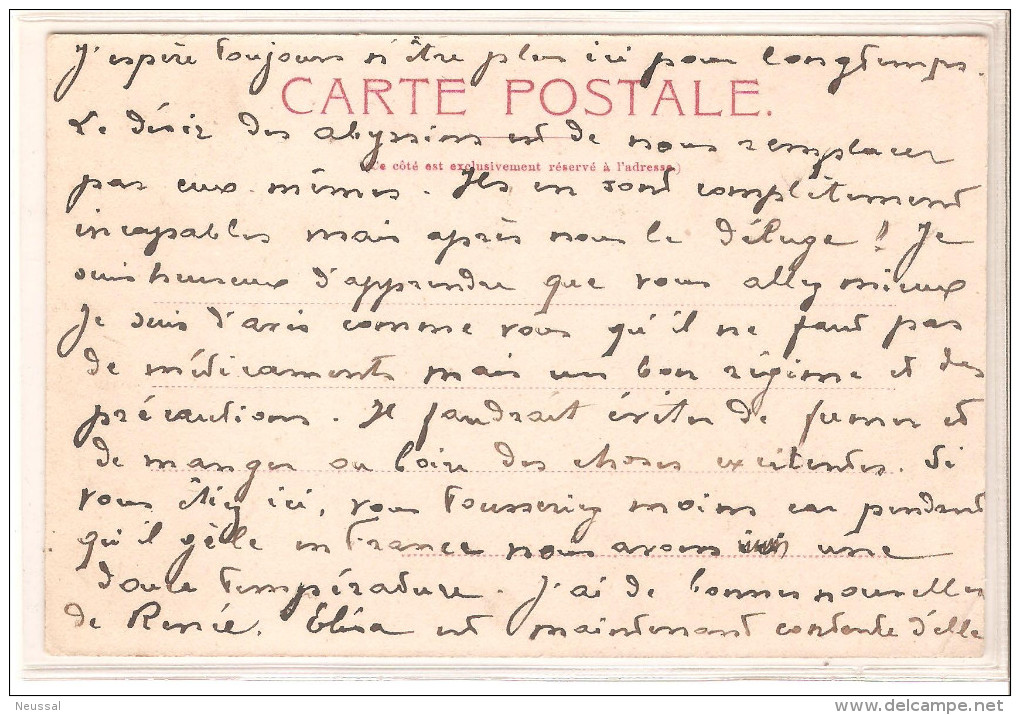 J'espère toujours n'être plus ici pour longtemps.
CARTE POSTALE.
Le désir des abyssins est de nous remplacer
(Ce côté est exclusivement réservé à l'adresse)
par eux-mêmes. Ils en sont complètement
incapables mais après nous le déluge! Je
suis heureux d'apprendre que vous allez mieux
Je suis d'avis comme vous qu'il ne faut pas
de médicaments mais un bon régime et des
précautions. Il faudrait éviter de fumer et
de manger ou boire des choses excitentes. Si
vous étiez ici, vous tousseriez moins car pendant
qu'il gèle en France nous avons une
douce température. J'ai de bonnes nouvelles
de Renée. Elisa est maintenant contente d'elle
Neussal
delcampe.net